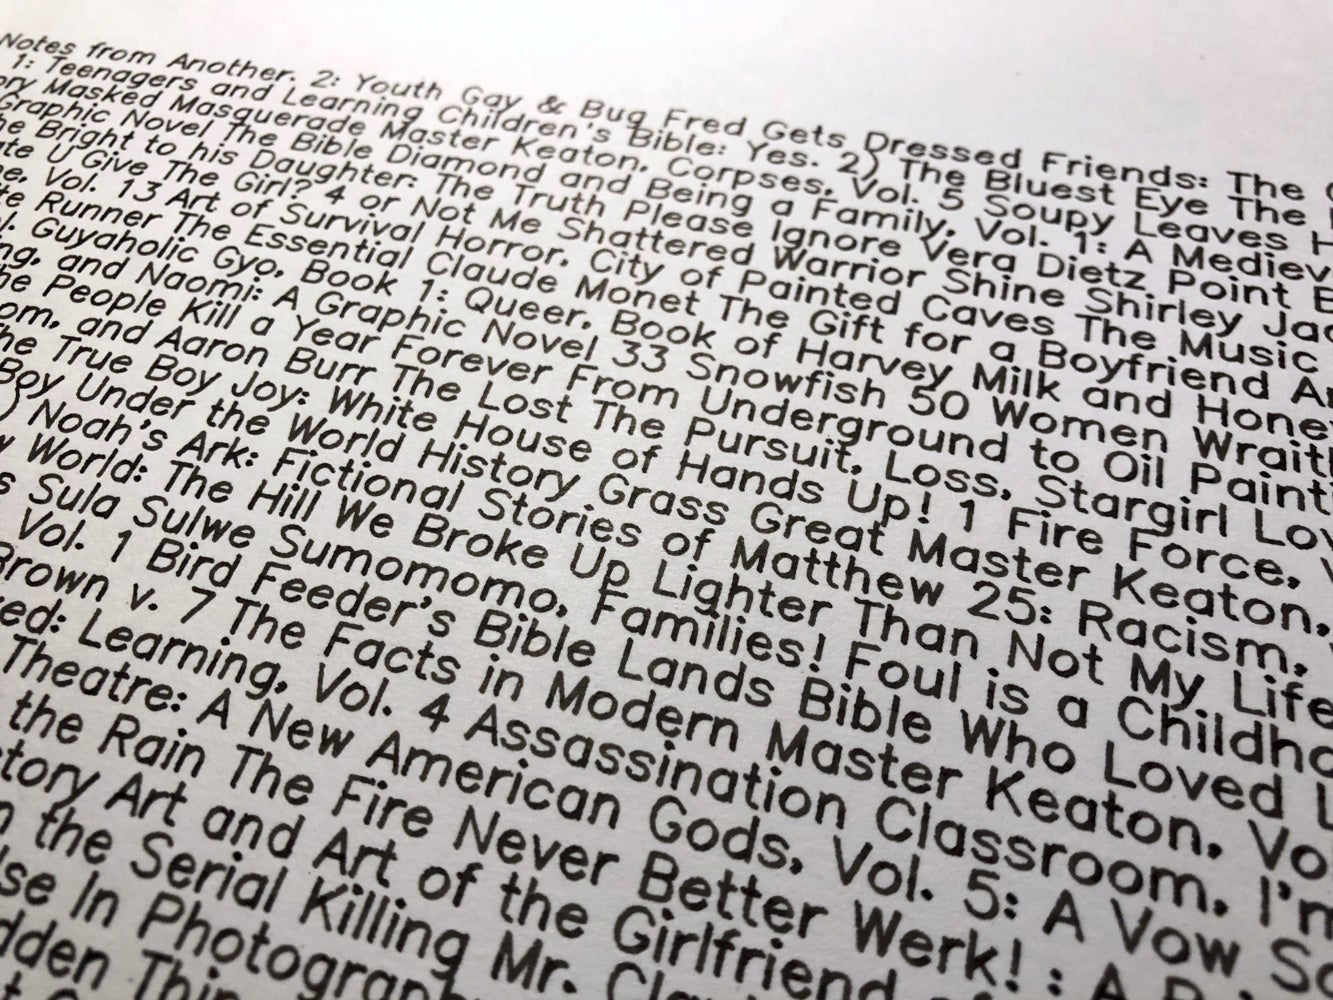 Notes from Another, 2: Youth Gay & Bug Fred Gets Dressed Friends: The
1: Teenagers and Learning Children's Bible: Yes. 2) The Bluest Eye The
ory Masked Masquerade Master Keaton, Corpses, Vol. 5 Soupy Leaves H
Graphic Novel The Bible Diamond and Being a Family, Vol. 1: A Mediev
he Bright to his Daughter: The Truth Please Ignore Vera Dietz Point B
ate U Give The Girl? 4 or Not Me Shattered Warrior Shine Shirley Jac
ne, Vol. 13 Art of Survival Horror, City of Painted Caves The Music
te Runner The Essential Claude Monet The Gift for a Boyfriend Ar
l: Guyaholic Gyo, Book 1: Queer, Book of Harvey Milk and Hone
ng, and Naomi: A Graphic Novel 33 Snowfish 50 Women Wrait
he People Kill a Year Forever From Underground to Oil Paint
om, and Aaron Burr The Lost The Pursuit, Loss, Stargirl Lov
he True Boy Joy: White House of Hands Up! 1 Fire Force,
Boy Under the World History Grass Great Master Keaton,
) Noah's Ark: Fictional Stories of Matthew 25: Racism,
w World: The Hill We Broke Up Lighter Than Not My Life
s Sula Sulwe Sumomomo, Families! Foul is a Childho
Vol. 1 Bird Feeder's Bible Lands Bible Who Loved
Brown v. 7 The Facts in Modern Master Keaton, Vo
ed: Learning, Vol. 4 Assassination Classroom, I'm
Theatre: A New American Gods, Vol. 5: A Vow So
the Rain The Fire Never Better Werk! : A
story Art and Art of the Girlfriend
n the Serial Killing Mr.
lse In Photograph
dden Thin